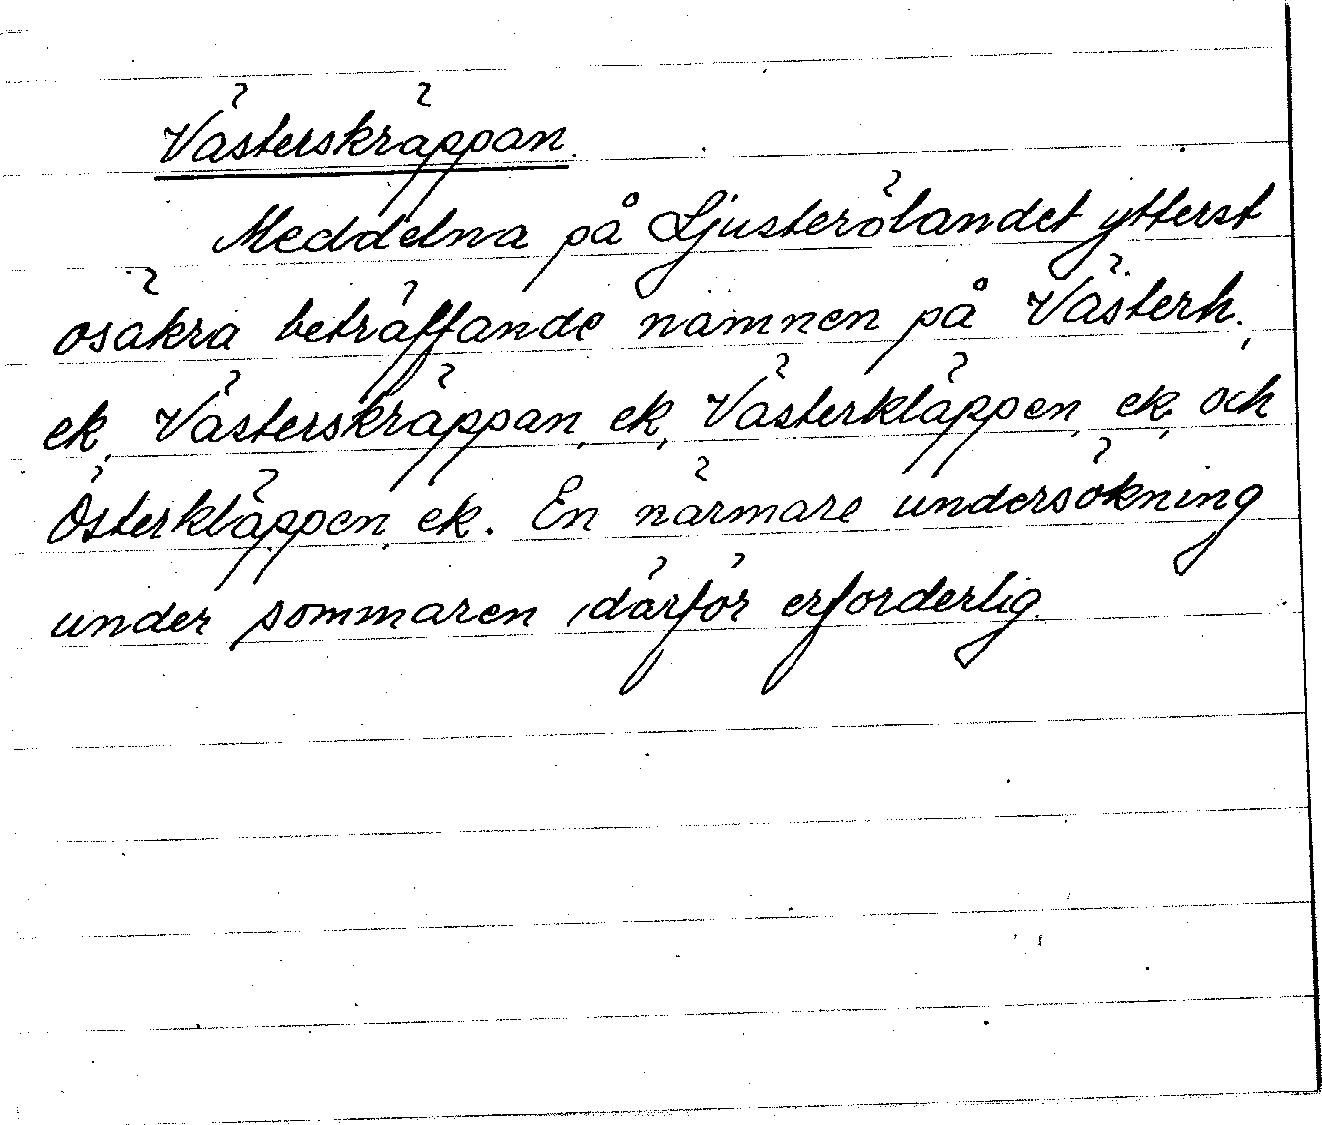 Västerskräppan.
Meddelna på Ljusterölandet ytterst
osäkra beträffande namnen på Västerh.,
ek, Västerskräppan, ek, Västerkläppen, ek, och
Österkläppen, ek. En närmare undersökning
under sommaren därför erforderlig.